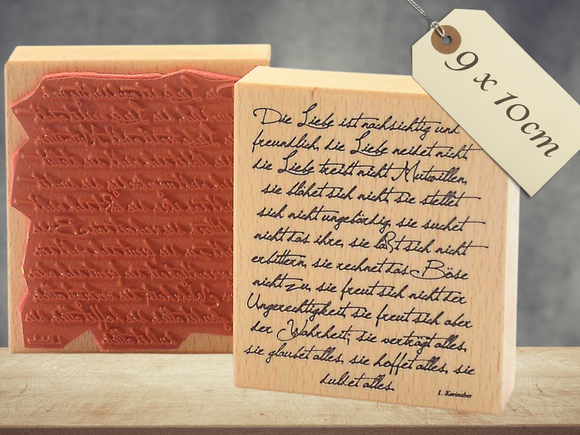 Die Liebe ist nachsichtig und
freundlich, die Liebe neidet nicht,
die Liebe treibt nicht Mutwillen,
sie blähet sich nicht, sie stellet
sich nicht ungebärdig, sie suchet
nicht das ihre, sie läßt sich nicht
erbittern, sie rechnet das Böse
nicht zu, sie freut sich nicht der
Ungerechtigkeit, sie freut sich aber
der Wahrheit; sie verträgt alles,
sie glaubet alles, sie hoffet alles, sie
duldet alles.
1. Korinther
9 x 10cm